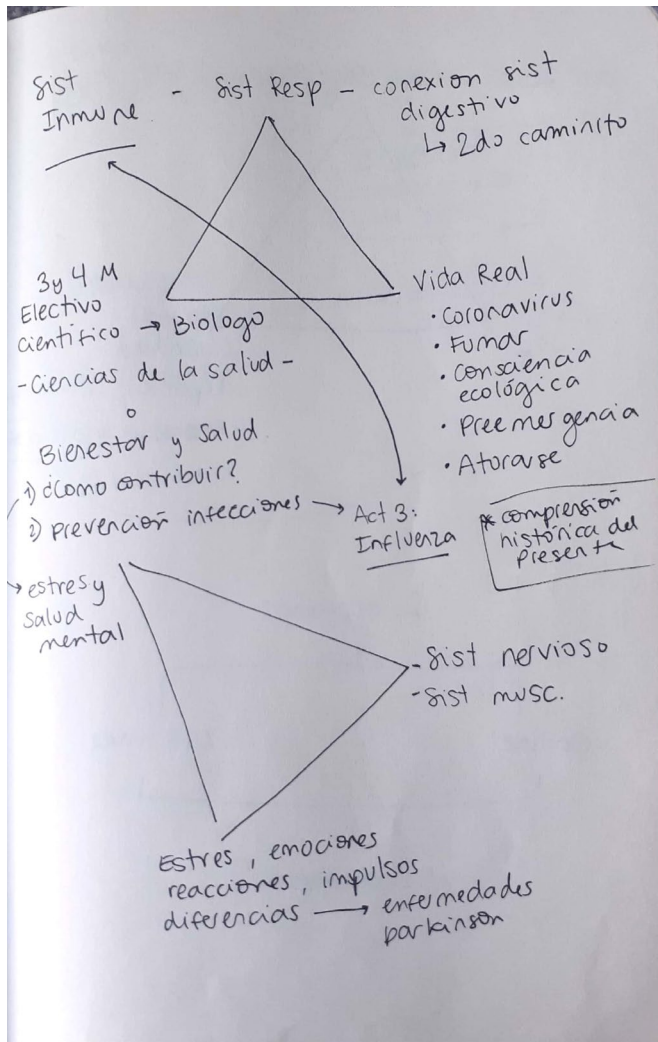 Sist
Inmune - Sist Resp - conexion sist
digestivo
↳ 2do caminito
3 y 4 M
Electivo
científico → Biologo
- Ciencias de la salud -
o
Bienestar y Salud
1) ¿Como contribuir?
2) prevención infecciones → Act 3:
Influenza
→ estres y
salud
mental
Vida Real
· Coronavirus
· Fumar
· Consciencia
ecológica
· Preemergencia
· Atorarse
* comprensión
histórica del
presente
- Sist nervioso
- Sist musc.
Estres, emociones
reacciones, impulsos
diferencias → enfermedades
parkinson